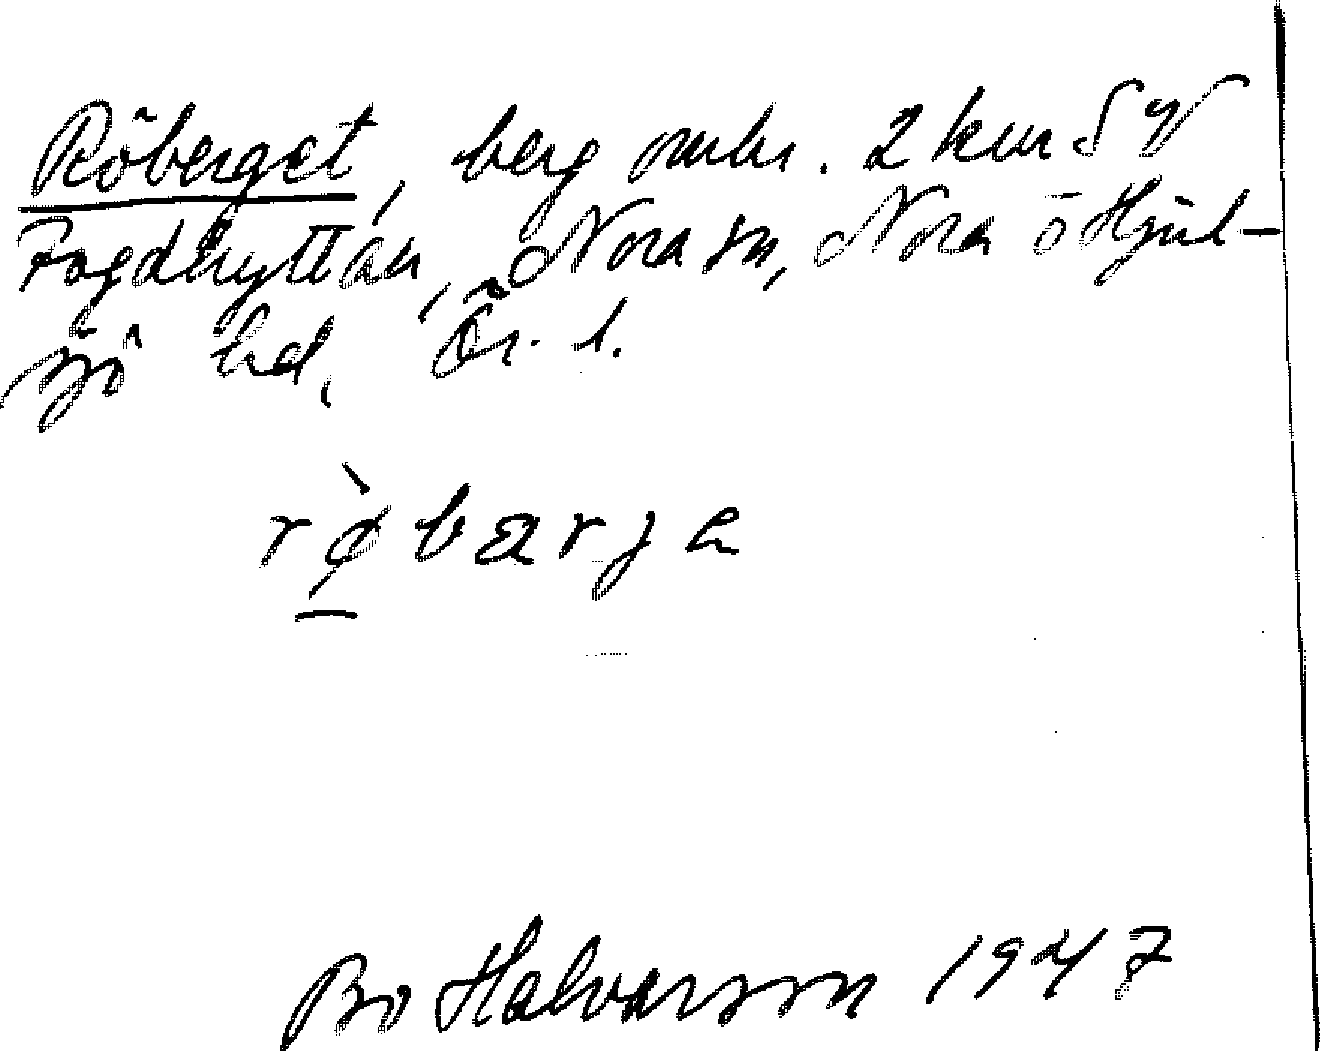 Röberget, berg omkr. 2 km SV
Fogdhyttan, Nora sn, Nora ö Hjul-
sjö hd, Ör. l.
rø̀bærje
Bo Halvarsson 1947